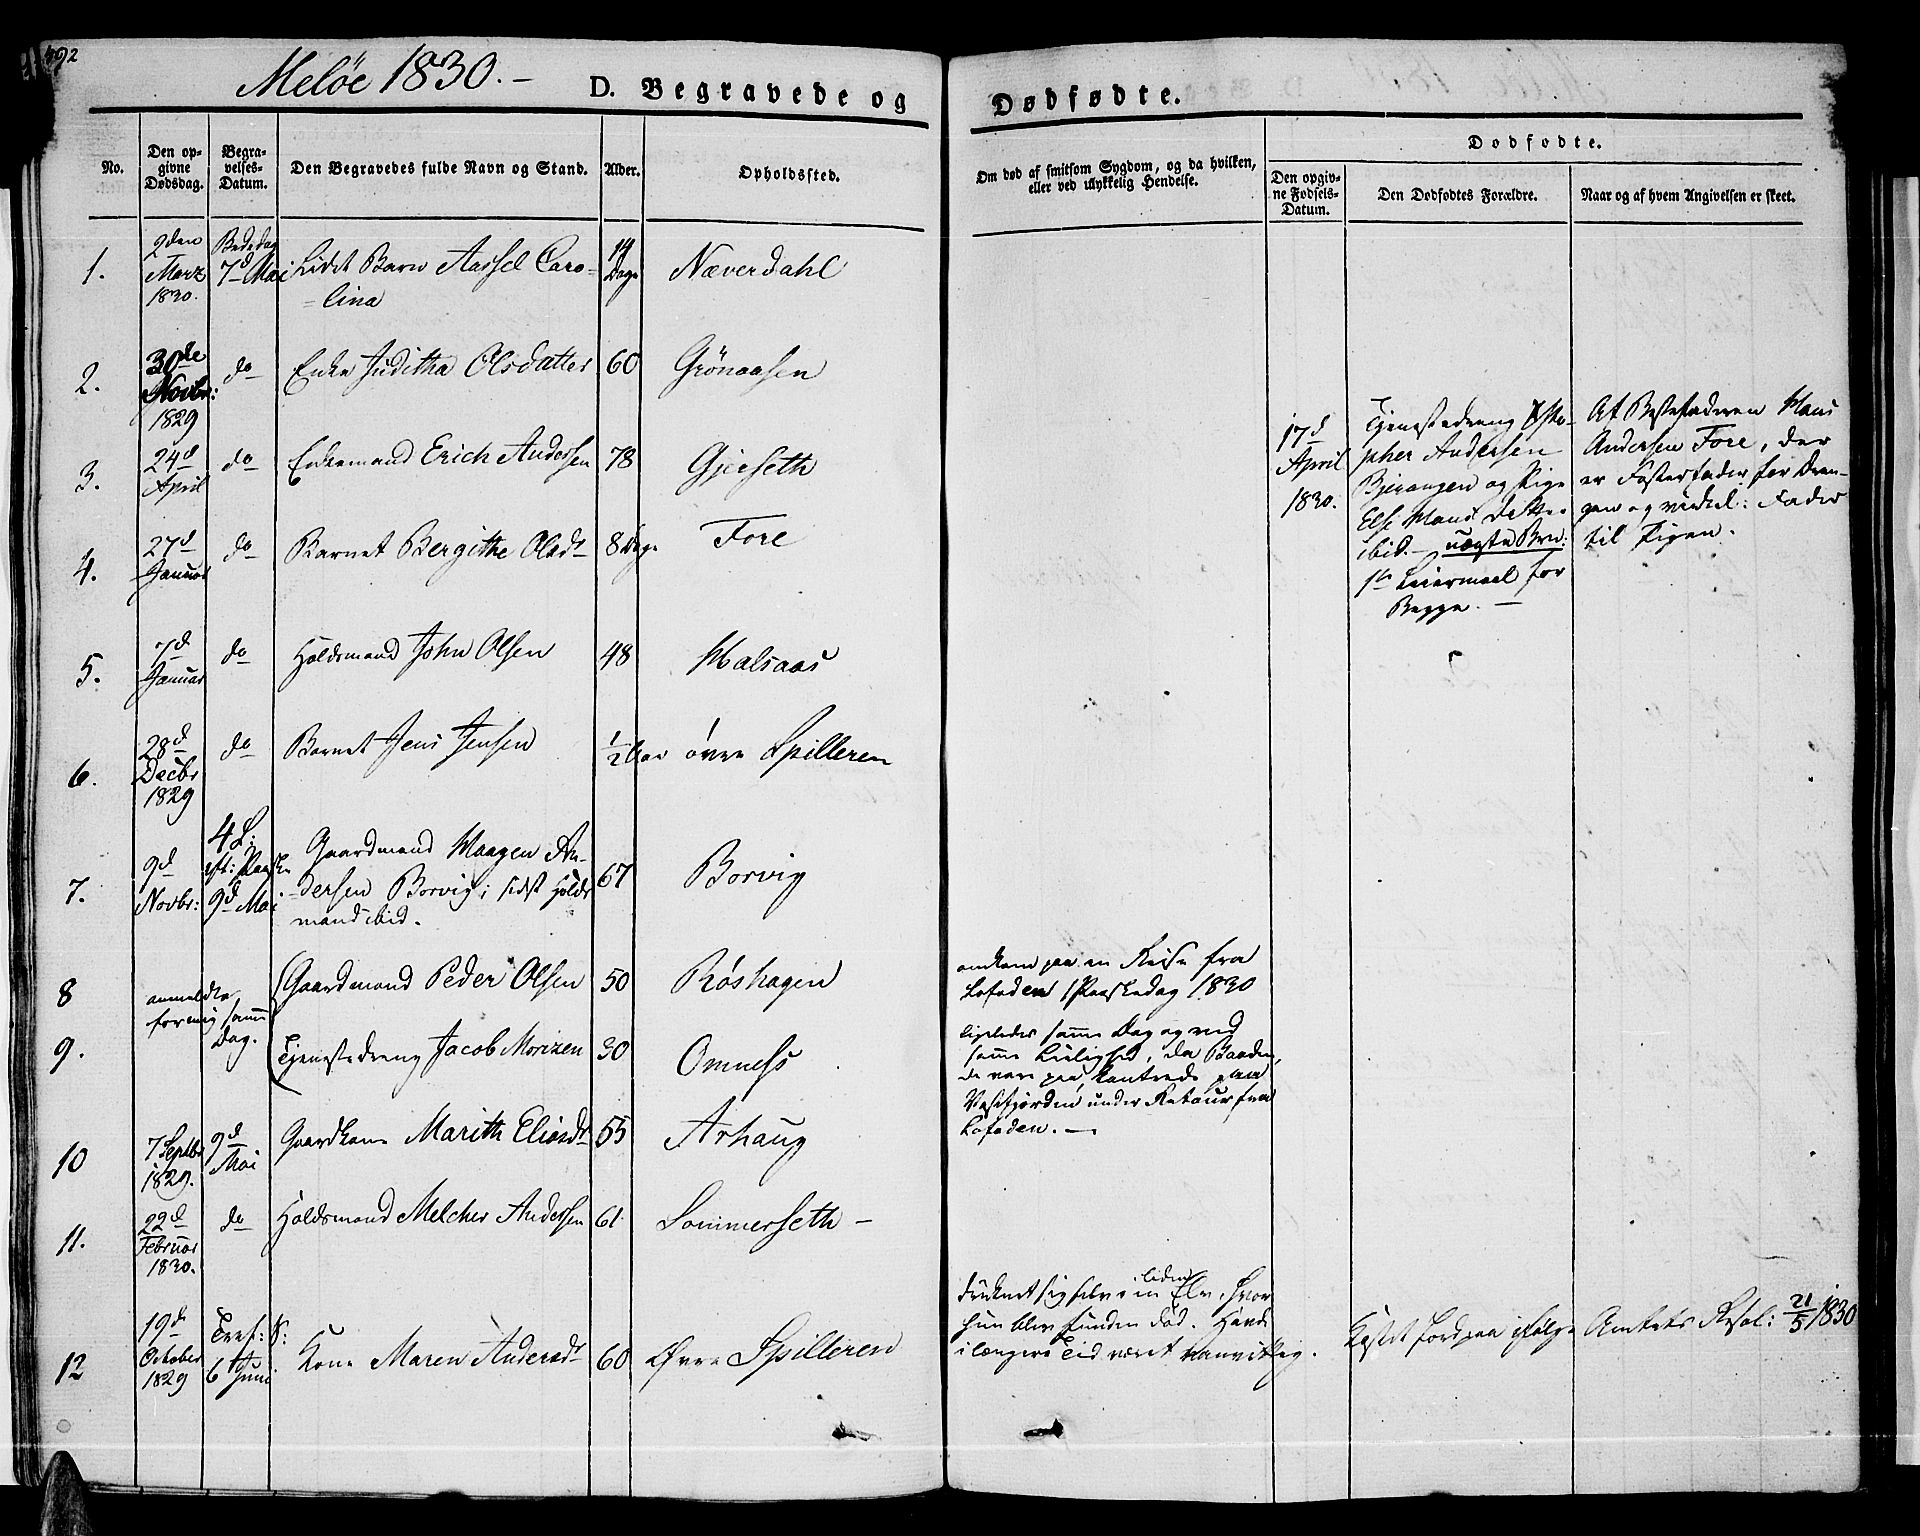 492
Meløe 1830.-
D. Begravede og Dødfødte.
No.
Den opgivne Dødsdag.
Begravelses-Datum.
Den Begravedes fulde Navn og Stand.
Alder.
Opholdssted.
Om død af smitsom Sygdom, og da hvilken, eller ved ulykkelig Hendelse.
Dødfødte.
Den opgivne Fødsels-Datum.
Den Dødfødtes Forældre.
Naar og af hvem Angivelsen er skeet.
1. 9den Marz 1830. Bededag 7d Mai Lidet Barn Aassel Carolina 14 Dage Næverdahl
2. 30de Novbr: 1829 do Enke Juditha Olsdatter 60 Grönaasen
3. 24d April do Enkemand Erich Andersen 78 Gjerseth
17d April 1830.
Tjenestedreng
pher Andersen
Bjerangen og Pige
Else Hans Datter
ibid. - uægte Brn:
1te Leiermaal for
Begge. -
Af Bestefaderen Hans
Andersen Fore, der
er Fosterfader for Dren-
gen og virkel: Fader
til Pigen.
4. 27d Januar do Barnet Bergithe Olsdr 8 Dage Fore
5. 7d Januar do Holdsmand John Olsen 48 Halsaas
6. 28d Decbr 1829 do Barnet Jens Jensen 1/2 Aar övre Spilleren
7. 9d Novbr: 4 S: eft: Paaske 9d Mai Gaardmand Haagen Andersen Borvig; sidst Holdsmand ibid. 67 Borvig
8 anmeldte for mig samme Dag. Gaardmand Peder Olsen 50 Røshagen
omkom paa en Reise fra
Lofoden 1 Paaskedag 1830
9. Tjenestedreng Jacob Morizen 30 Omness
ligeledes samme Dag og ved
samme Leilighed, da Baaden,
de vare paa, kantrede paa
Vestfjorden under Retour fra
Lofoden. -
10 7 Septbr 1829. 9d Mai Gaardkone Marith Eliasdr 55 Arhaug
11. 22d Februar 1830. do Holdsmand Melcher Andersen 61. Sommerseth -
12 19d October 1829 Tref: S: 6t Juni Kone Maren Andersdr 60 Øvre Spilleren
druknet sig selv i en liden Elv, hvor
hun blev funden död. Havde
i længere Tid været vanvittig.
Kastet Jord paa ifølge Amtets Resol: 21/5 1830